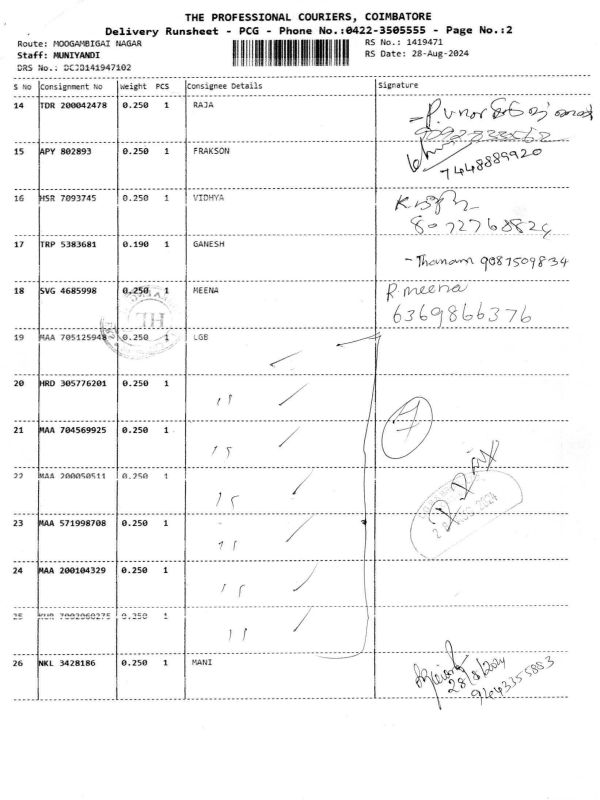 THE PROFESSIONAL COURIERS, COIMBATORE
Delivery Runsheet - PCG - Phone No.:0422-3505555 - Page No.:2
Route: MOOGAMBIGAI NAGAR RS No.: 1419471
Staff: MUNIYANDI RS Date: 28-Aug-2024
DRS No.: DCJD141947102
S No Consignment No Weight PCS Consignee Details Signature
14 TDR 200042478 0.250 1 RAJA
15 APY 802893 0.250 1 FRAKSON
7448889920
16 HSR 7093745 0.250 1 VIDHYA
17 TRP 5383681 0.190 1 GANESH
- Thanam 9087509834
18 SVG 4685998 0.250 1 MEENA R meena
6369866376
19 MAA 705125948 0.250 1 LGB
20 HRD 305776201 0.250 1
21 MAA 704569925 0.250 1
7
22 MAA 200050511 0.250 1
23 MAA 571998708 0.250 1
24 MAA 200104329 0.250 1
25 0.250 1
26 NKL 3428186 0.250 1 MANI
28/8/2024
9443355883